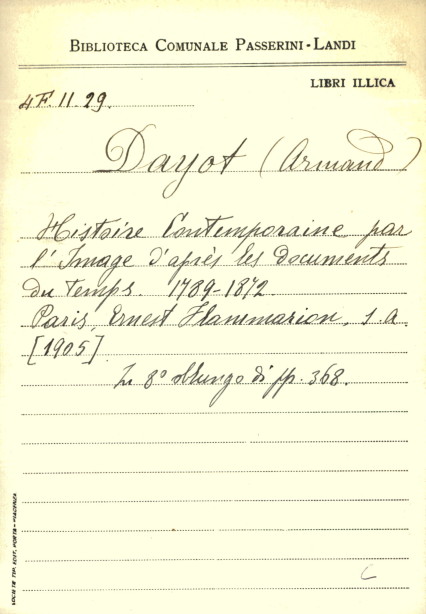 BIBLIOTECA COMUNALE PASSERINI-LANDI
LIBRI ILLICA
4F. II. 29.
Dayot (Armand)
Histoire Contemporaine par
l'Image d'après les documents
du temps. 1789-1872
Paris, Ernest Flammarion, s. a
[1905]
In 8° oblungo di pp. 368.